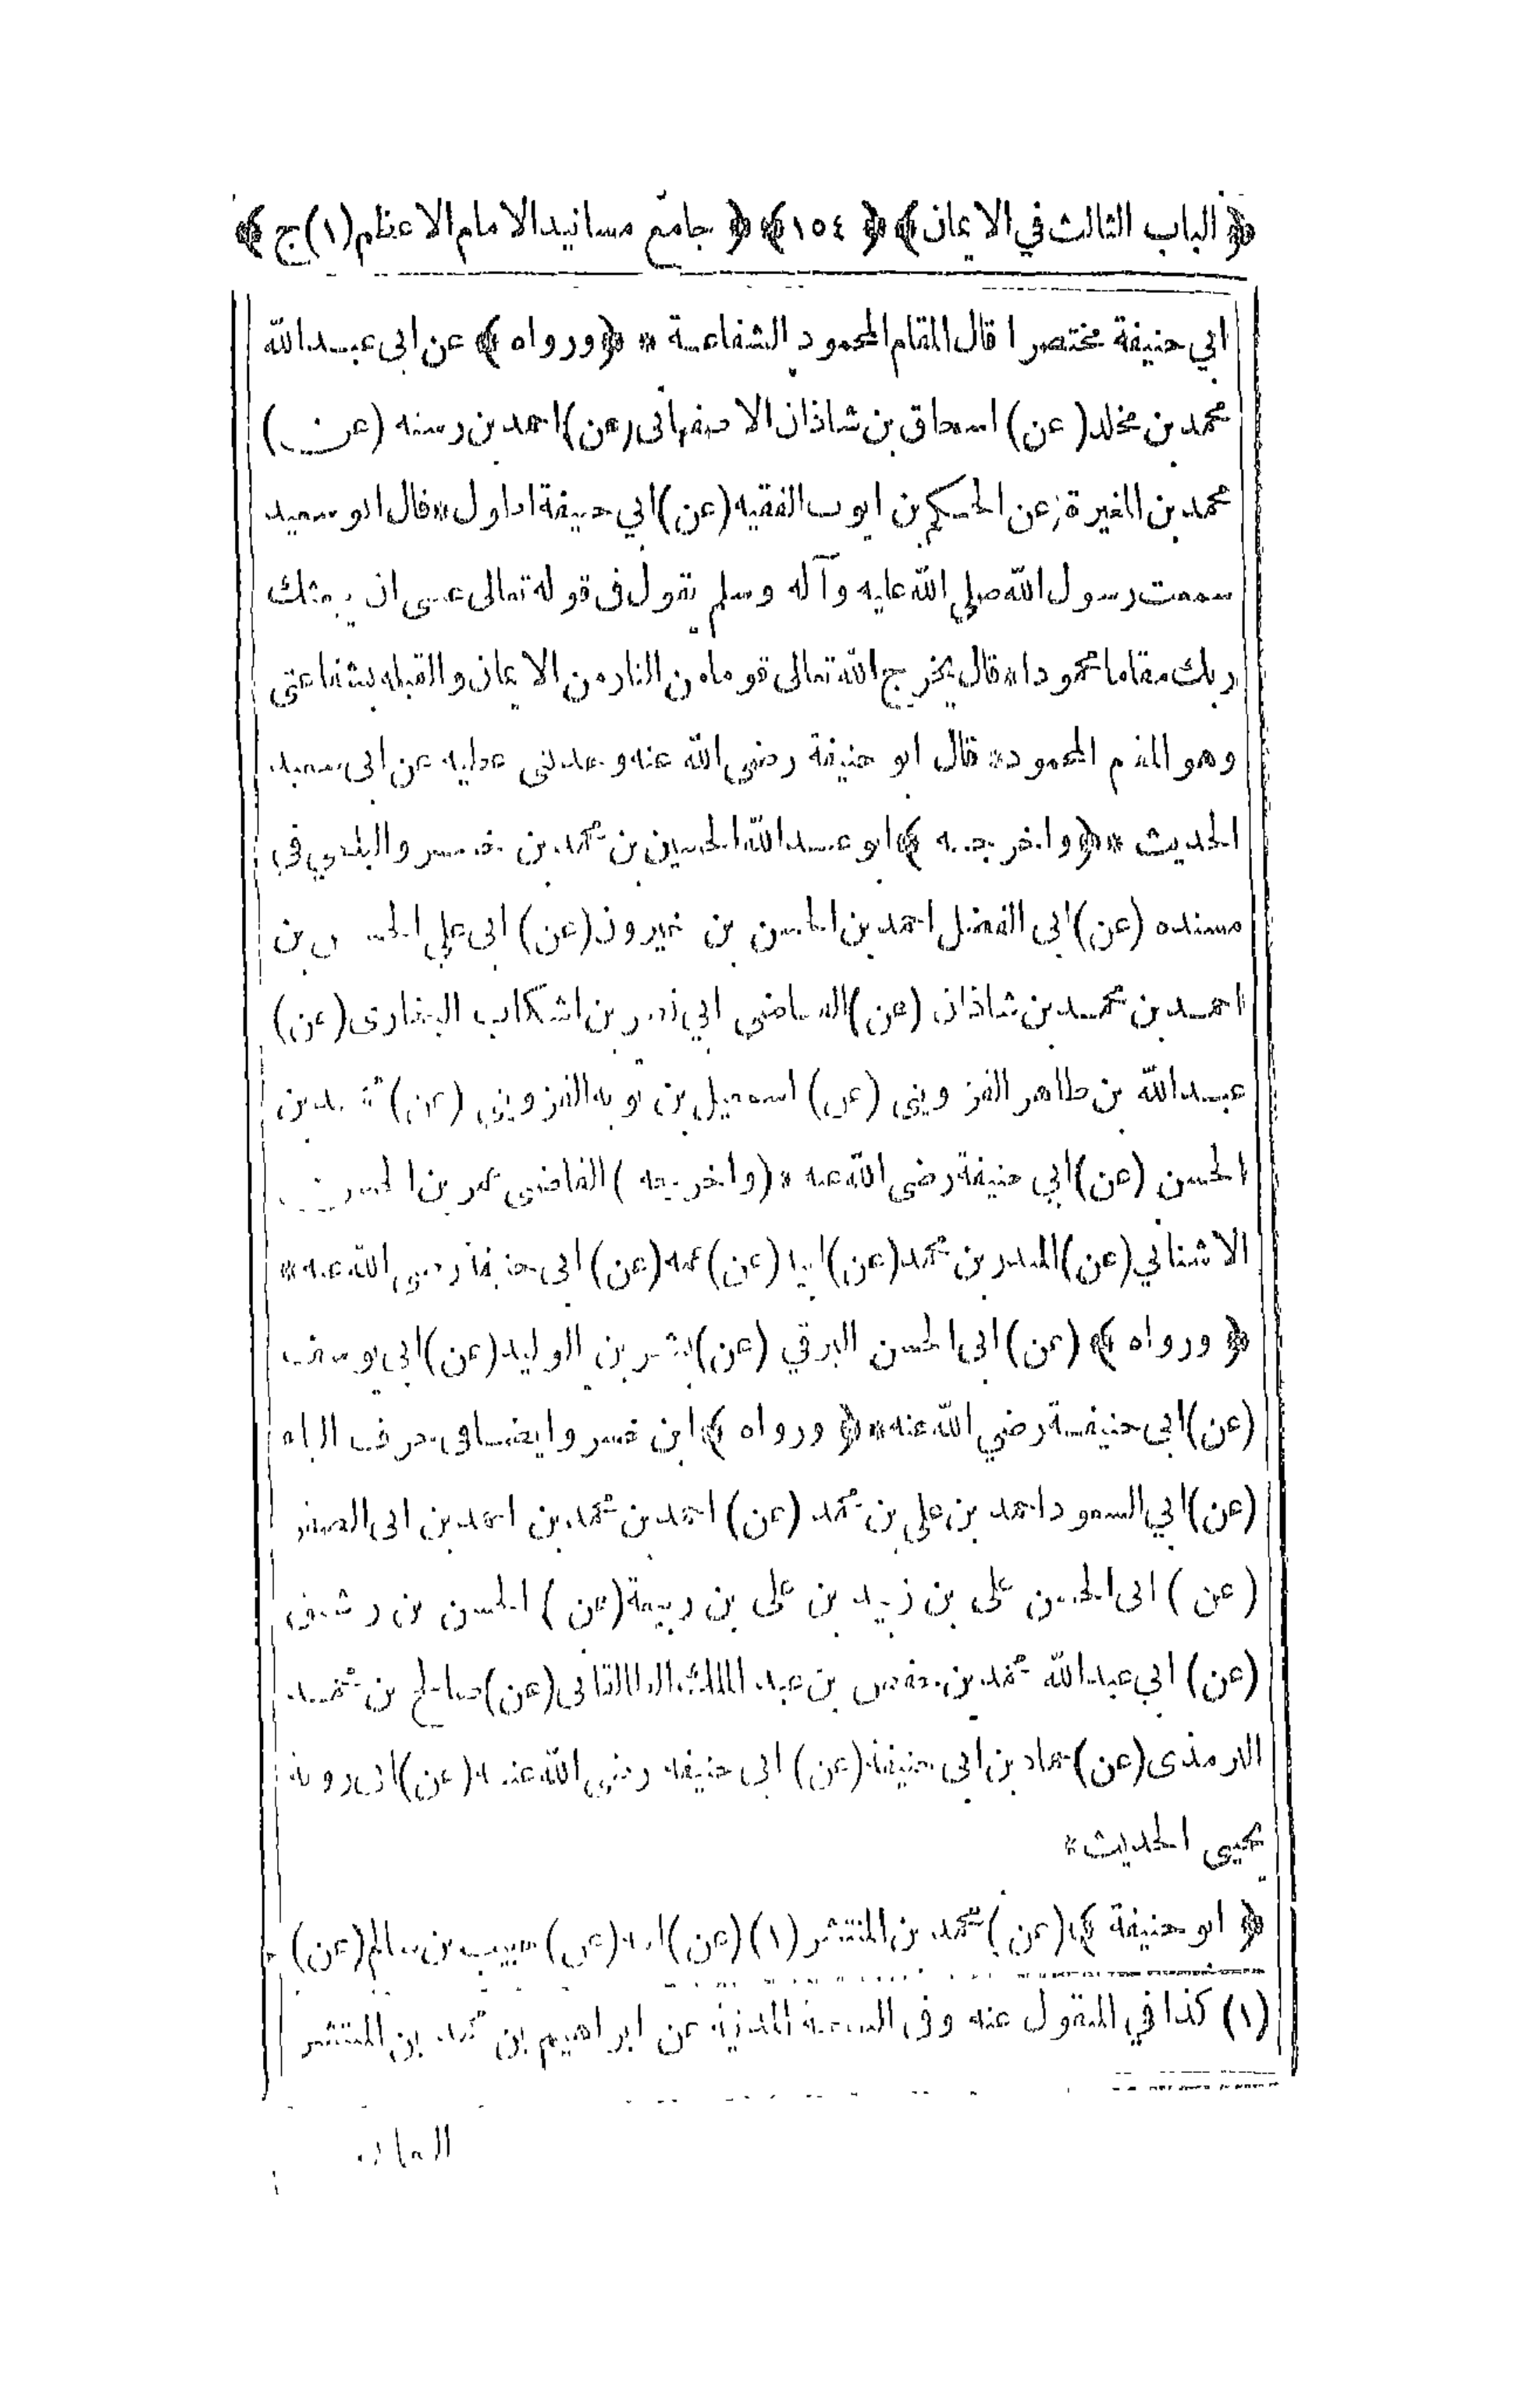 ﴿ الباب الثالث في الايمان ﴾ ﴿ ١٥٤ ﴾ ﴿ جامع مسانيد الامام الاعظم (١) ج ﴾
ابي حنيفة مختصرا قال المقام المحمود الشفاعة * ﴿ ورواه ﴾ عن ابى عبد الله
محمد بن مخلد (عن) اسحاق بن شاذان الاصفهانى (عن) احمد بن رسته (عن)
محمد بن المغيرة (عن الحكم بن ايوب الفقيه (عن) ابي حنيفة * قال ابو سعيد
سمعت رسول الله صلي الله عليه وآله وسلم يقول فى قوله تعالى عسى ان يبعثك
ربك مقاما محمودا * قال يخرج الله تعالى قوما من النار من الايمان والقبلة بشفاعتى
وهو المحمود * قال ابو حنيفة رضي الله عنه وحدثنى عطيه عن ابى سعيد
الحديث * ﴿ واخرجه ﴾ ابو عبد الله الحسين بن محمد بن خسرو البلخي في
مسنده (عن) ابى الفضل احمد بن الحسن بن خيرون (عن) ابى علي الحسن بن
احمد بن محمد بن شاذان (عن) القاضى ابي نصر بن اشكاب البخارى (عن)
عبد الله بن طاهر القزوينى (عن) اسمعيل بن توبه القزويني (عن) محمد بن
الحسن (عن) ابي حنيفة رضى الله عنه * (واخرجه) القاضى عمر بن الحسن
الاشناني (عن) المنذر بن محمد (عن) ابيه (عن) عمه (عن) ابى حنيفة رضى الله عنه *
﴿ ورواه ﴾ (عن) ابى الحسن البرقي (عن) بشر بن الوليد (عن) ابى يوسف
(عن) ابى حنيفة رضي الله عنه * ﴿ ورواه ﴾ ابن خسرو ايضا فى حرف الراء
(عن) ابي السعود احمد بن على بن محمد (عن) احمد بن محمد بن احمد بن ابى الصقر
(عن) ابى الحسن على بن زيد بن على بن ربيعة (عن) الحسن بن رشيق
(عن) ابي عبد الله محمد بن حفص بن عبد الملك الطالقانى (عن) صالح بن محمد
الترمذى (عن) حماد بن ابى حنيفة (عن) ابى حنيفه رضي الله عنه (عن) ابى روبة
يحيى الحديث *
﴿ ابو حنيفة ﴾ (عن) محمد بن المنتشر (١) (عن) ابيه (عن) حبيب بن سالم (عن)
(١) كذا في المنقول عنه وفى النسخة المدنية عن ابراهيم بن محمد بن المنتشر